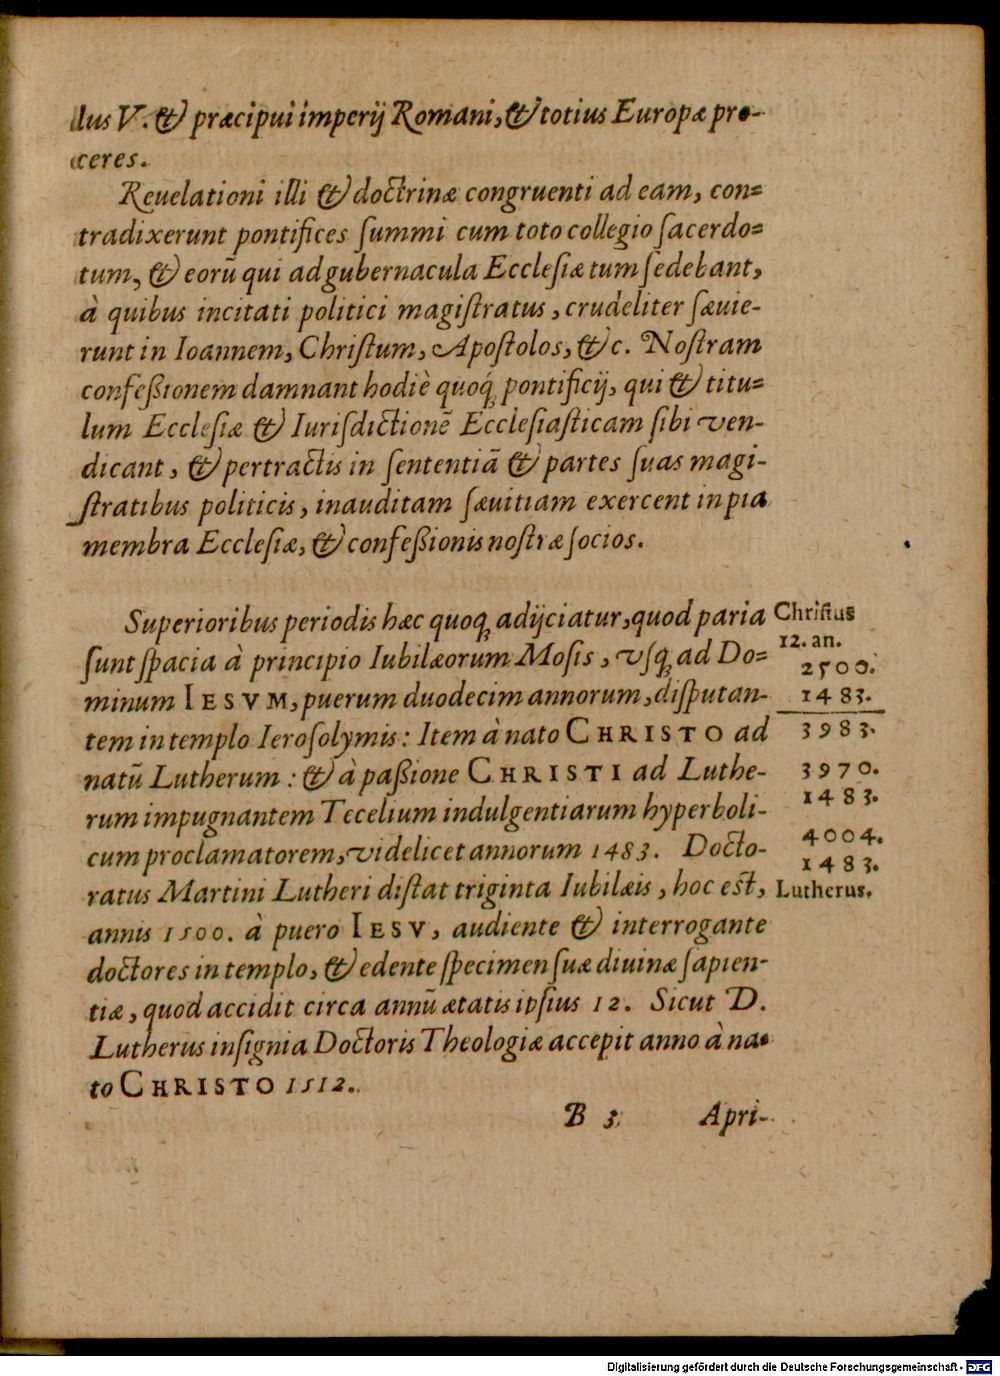 lus V. & præcipui imperij Romani, & totius Europæ pro-
ceres.
Reuelationi illi & doctrinæ congruenti ad eam, con=
tradixerunt pontifices ſummi cum toto collegio ſacerdo=
tum, & eorū qui ad gubernacula Eccleſiæ tum ſedebant,
à quibus incitati politici magiſtratus, crudeliter ſæuie-
runt in Ioannem, Chriſtum, Apoſtolos, &c. Noſtram
confeßionem damnant hodiè quoq́ꝫ pontificij, qui & titu=
lum Eccleſiæ & Iuriſdictionē Eccleſiaſticam ſibi ven-
dicant, & pertractis in ſententiā & partes ſuas magi-
ſtratibus politicis, inauditam ſæuitiam exercent in pia
membra Eccleſiæ, & confeßionis noſtræ ſocios.
Superioribus periodis hæc quoqꝫ adijciatur, quod paria
ſunt ſpacia à principio Iubilæorum Moſis, vſqꝫ ad Do=
minum IESVM, puerum duodecim annorum, diſputan-
tem in templo Ieroſolymis: Item à nato CHRISTO ad
natū Lutherum: & à paßione CHRISTI ad Luthe-
rum impugnantem Tecelium indulgentiarum hyperboli-
cum proclamatorem, videlicet annorum 1483. Docto-
ratus Martini Lutheri diſtat triginta Iubilæis, hoc eſt,
annis 1500. à puero IESV, audiente & interrogante
doctores in templo, & edente ſpecimen ſuæ diuinæ ſapien-
tiæ, quod accidit circa annū ætatis ipſius 12. Sicut D.
Lutherus inſignia Doctoris Theologiæ accepit anno à na-
to CHRISTO 1512.
Chriſtus
12. an.
2500.
1483.
3983.
3970.
1483.
4004.
1483.
Lutherus.
B 3 Apri-
Digitalisierung gefördert durch die Deutsche Forschungsgemeinschaft - DFG